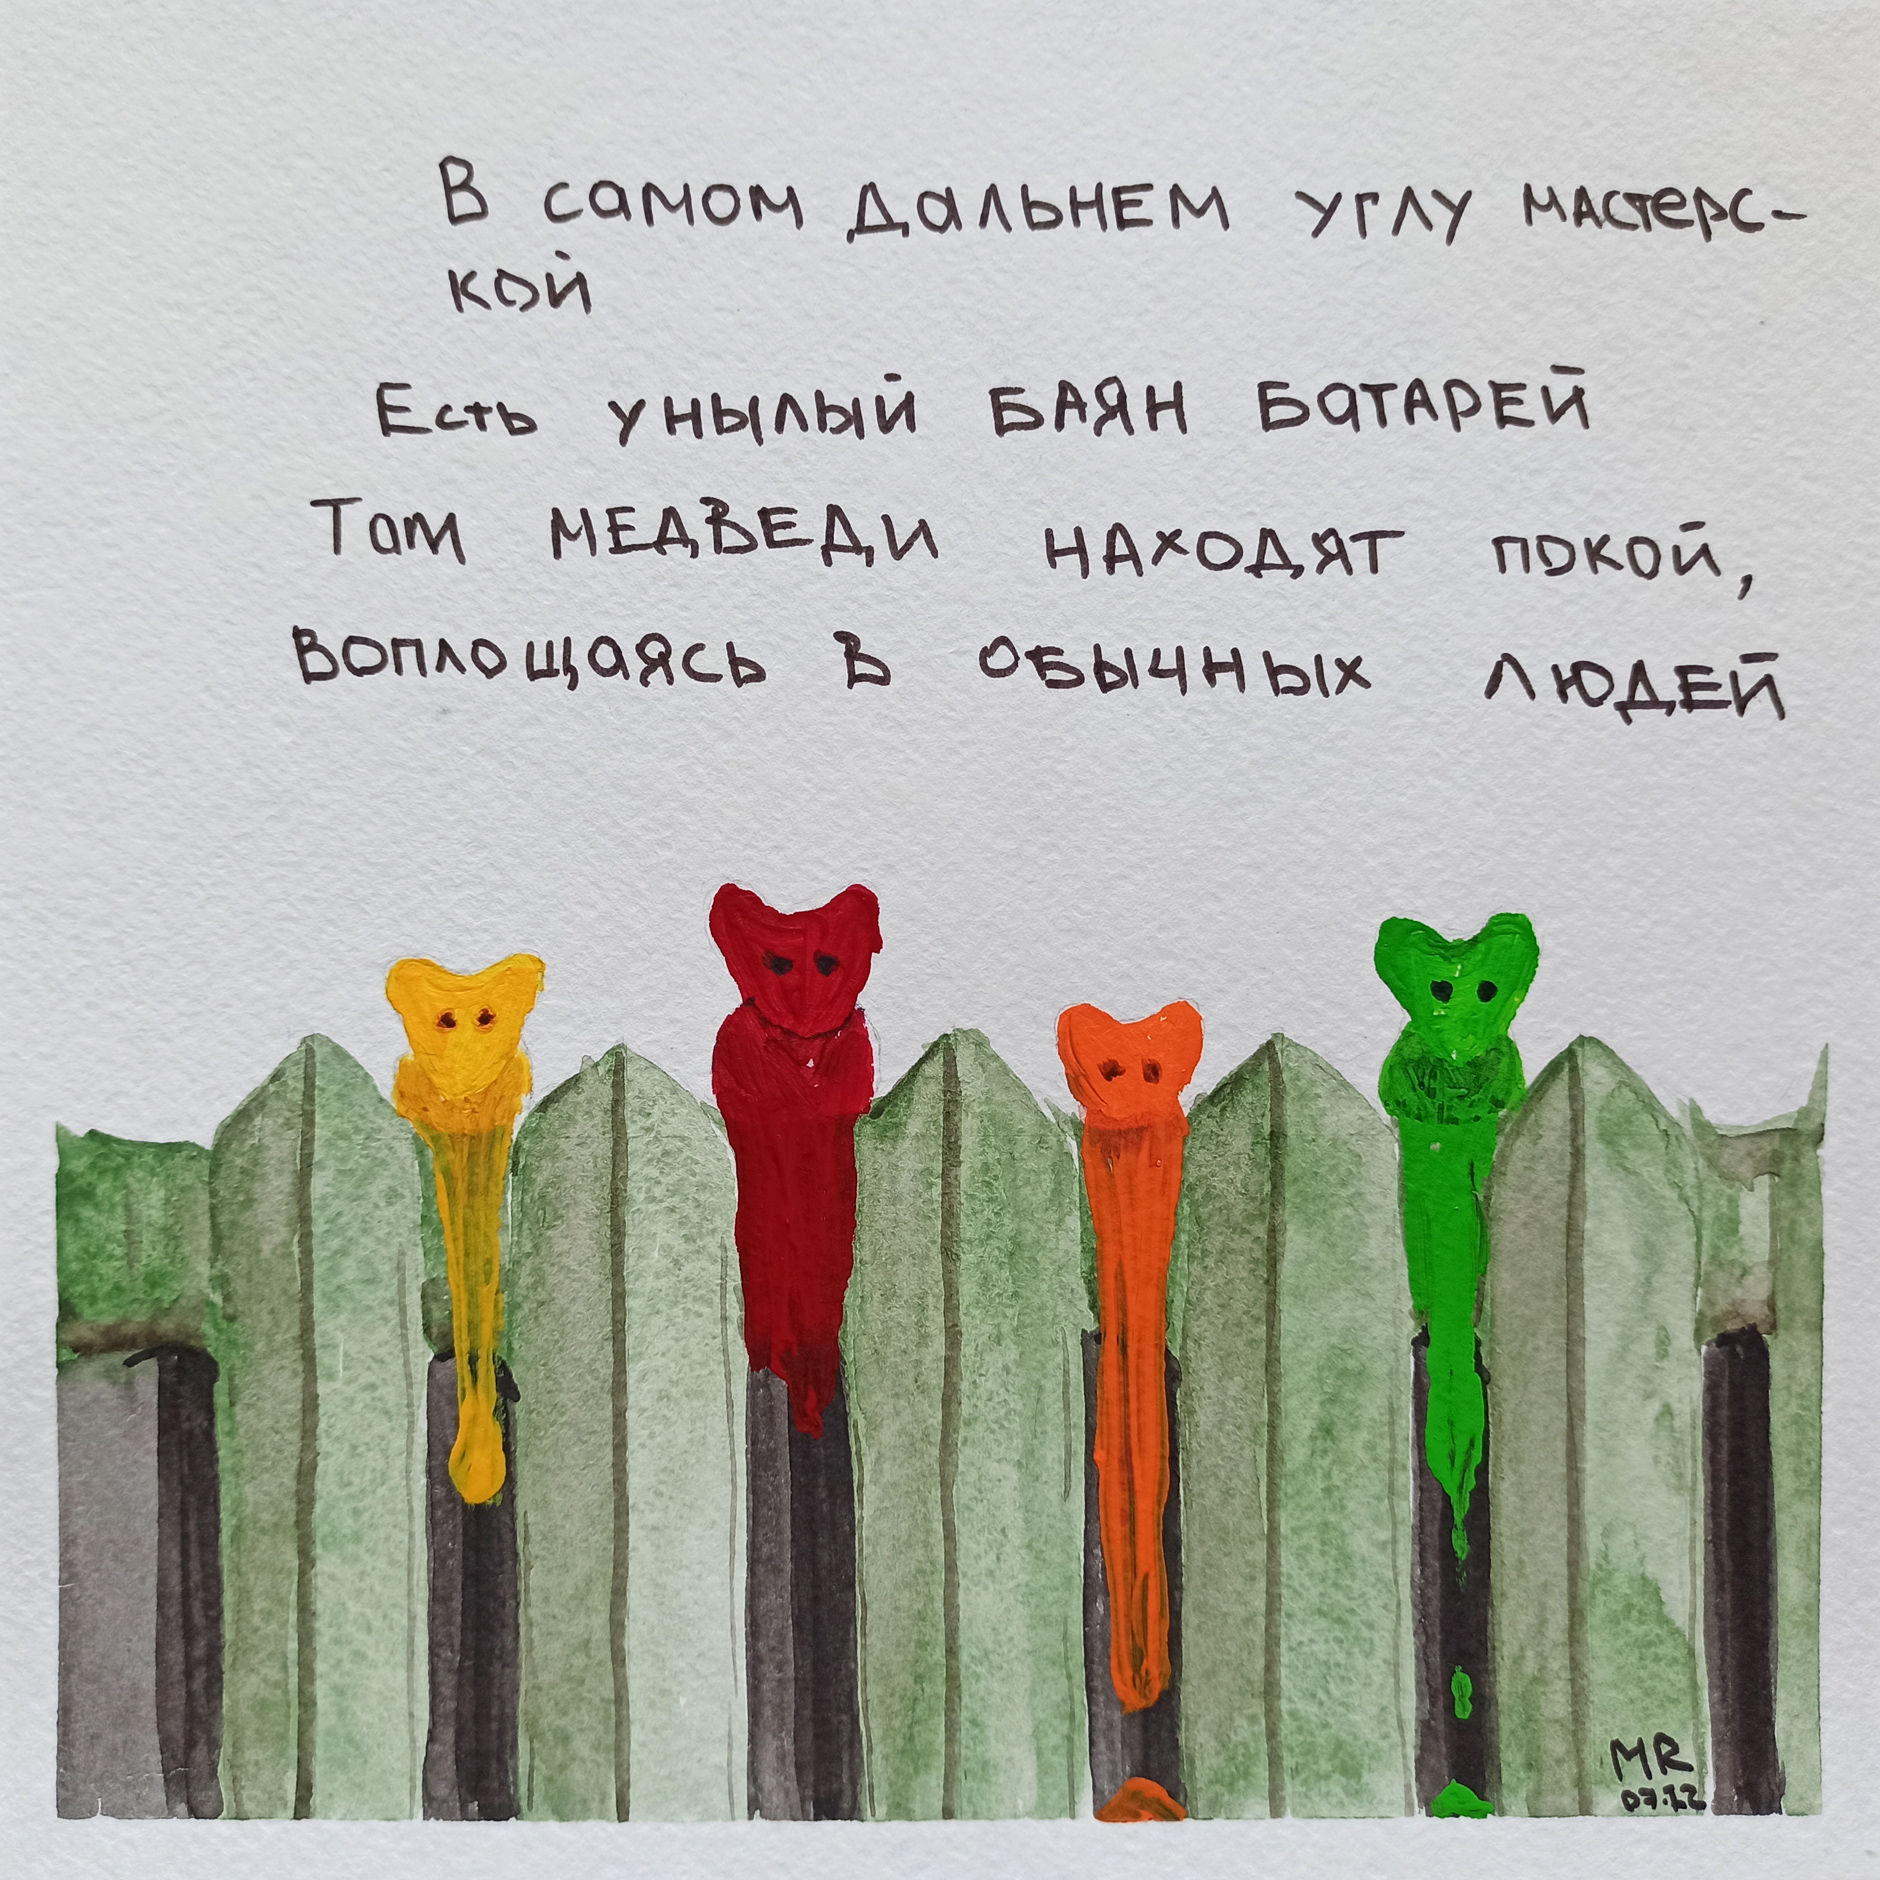 В самом дальнем углу мастерс-
кой
Есть унылый баян батарей
Там медведи находят покой,
Воплощаясь в обычных людей
MR
07.22